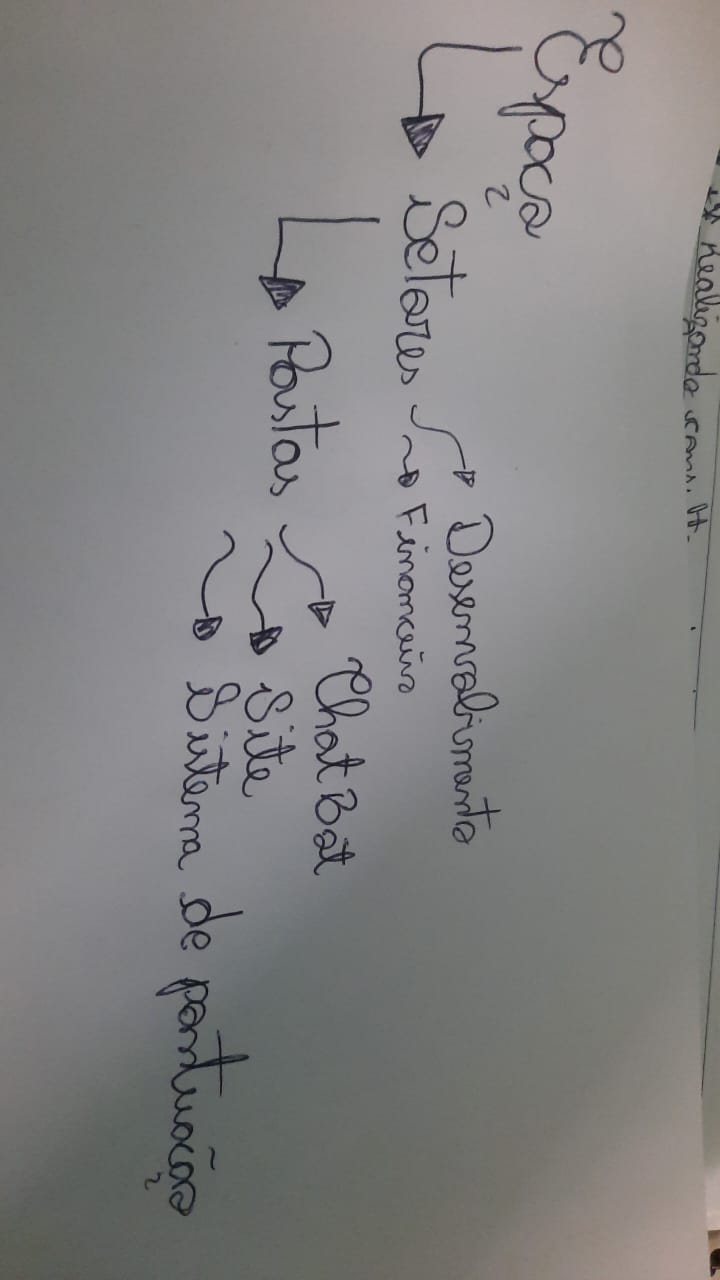 Realizando
Espaço
Setores
Desenvolvimento
Financeiro
Pastas
ChatBot
Site
Sistema de pontuação